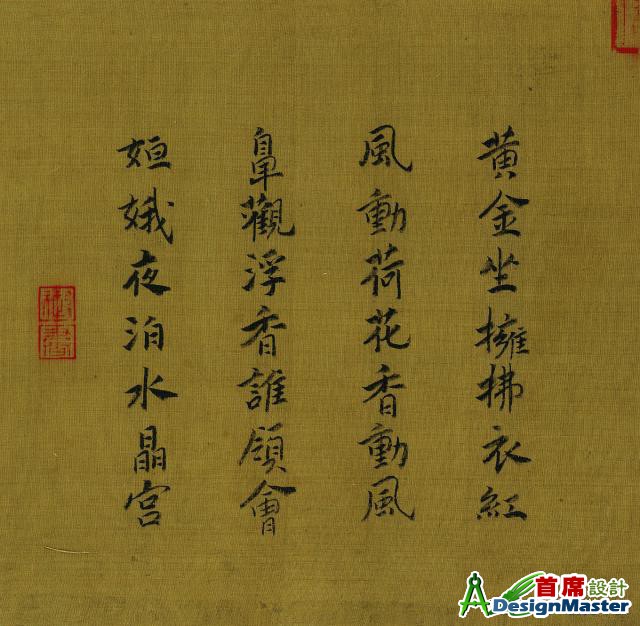 黄金坐擁拂衣紅
風動荷花香動風
鼻觀浮香誰領會
姮娥夜泊水晶宮
首席設計
DesignMaster